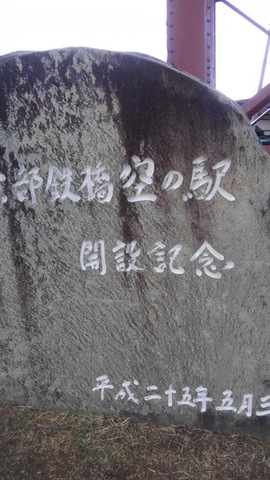 部鉄橋空の駅
開設記念
平成二十五年五月三